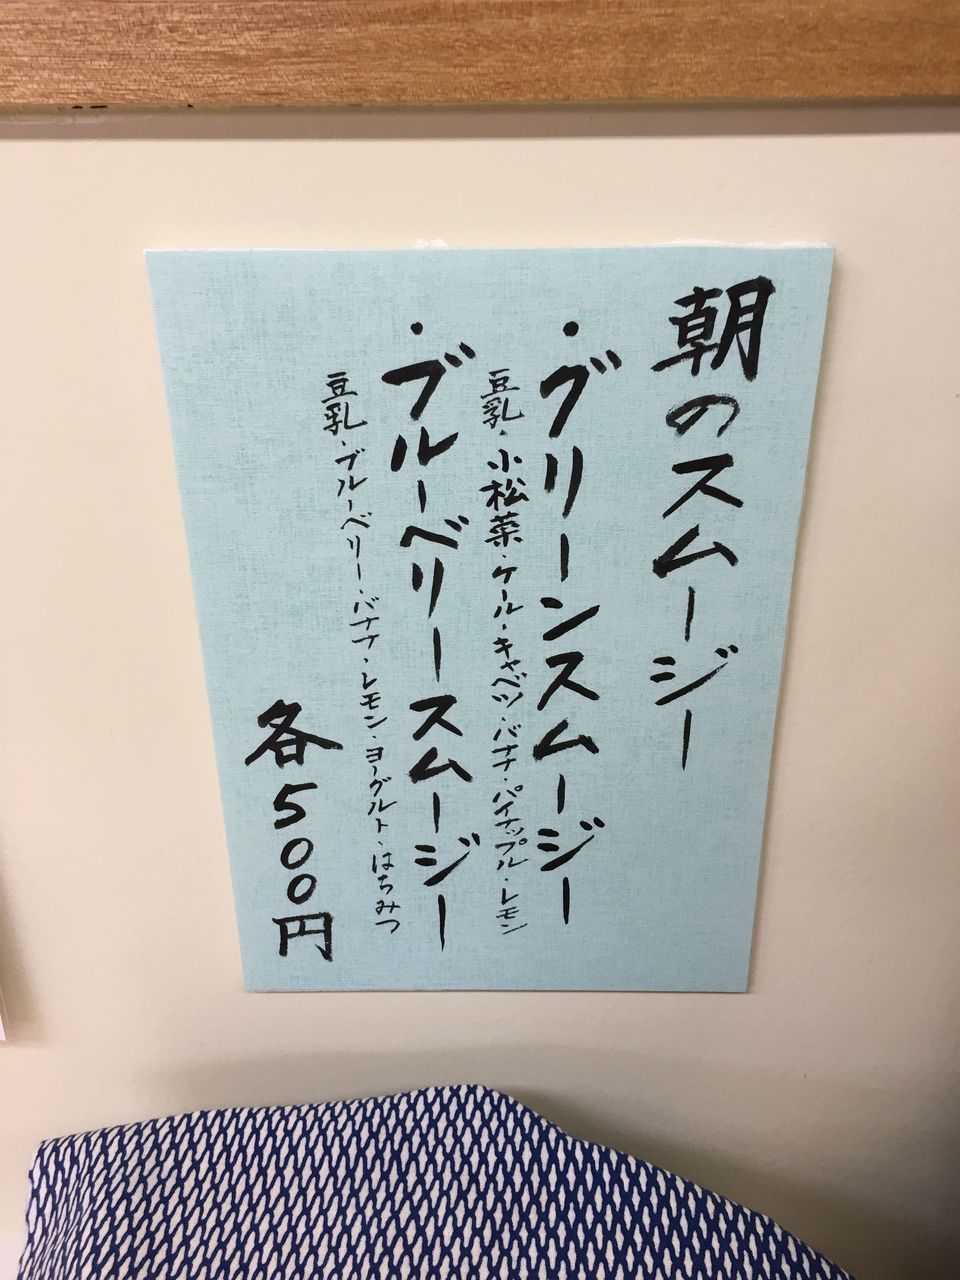 朝のスムージー
・グリーンスムージー
豆乳・小松菜・ケール・キャベツ・バナナ・パイナップル・レモン
・ブルーベリースムージー
豆乳・ブルーベリー・バナナ・レモン・ヨーグルト・はちみつ
各500円